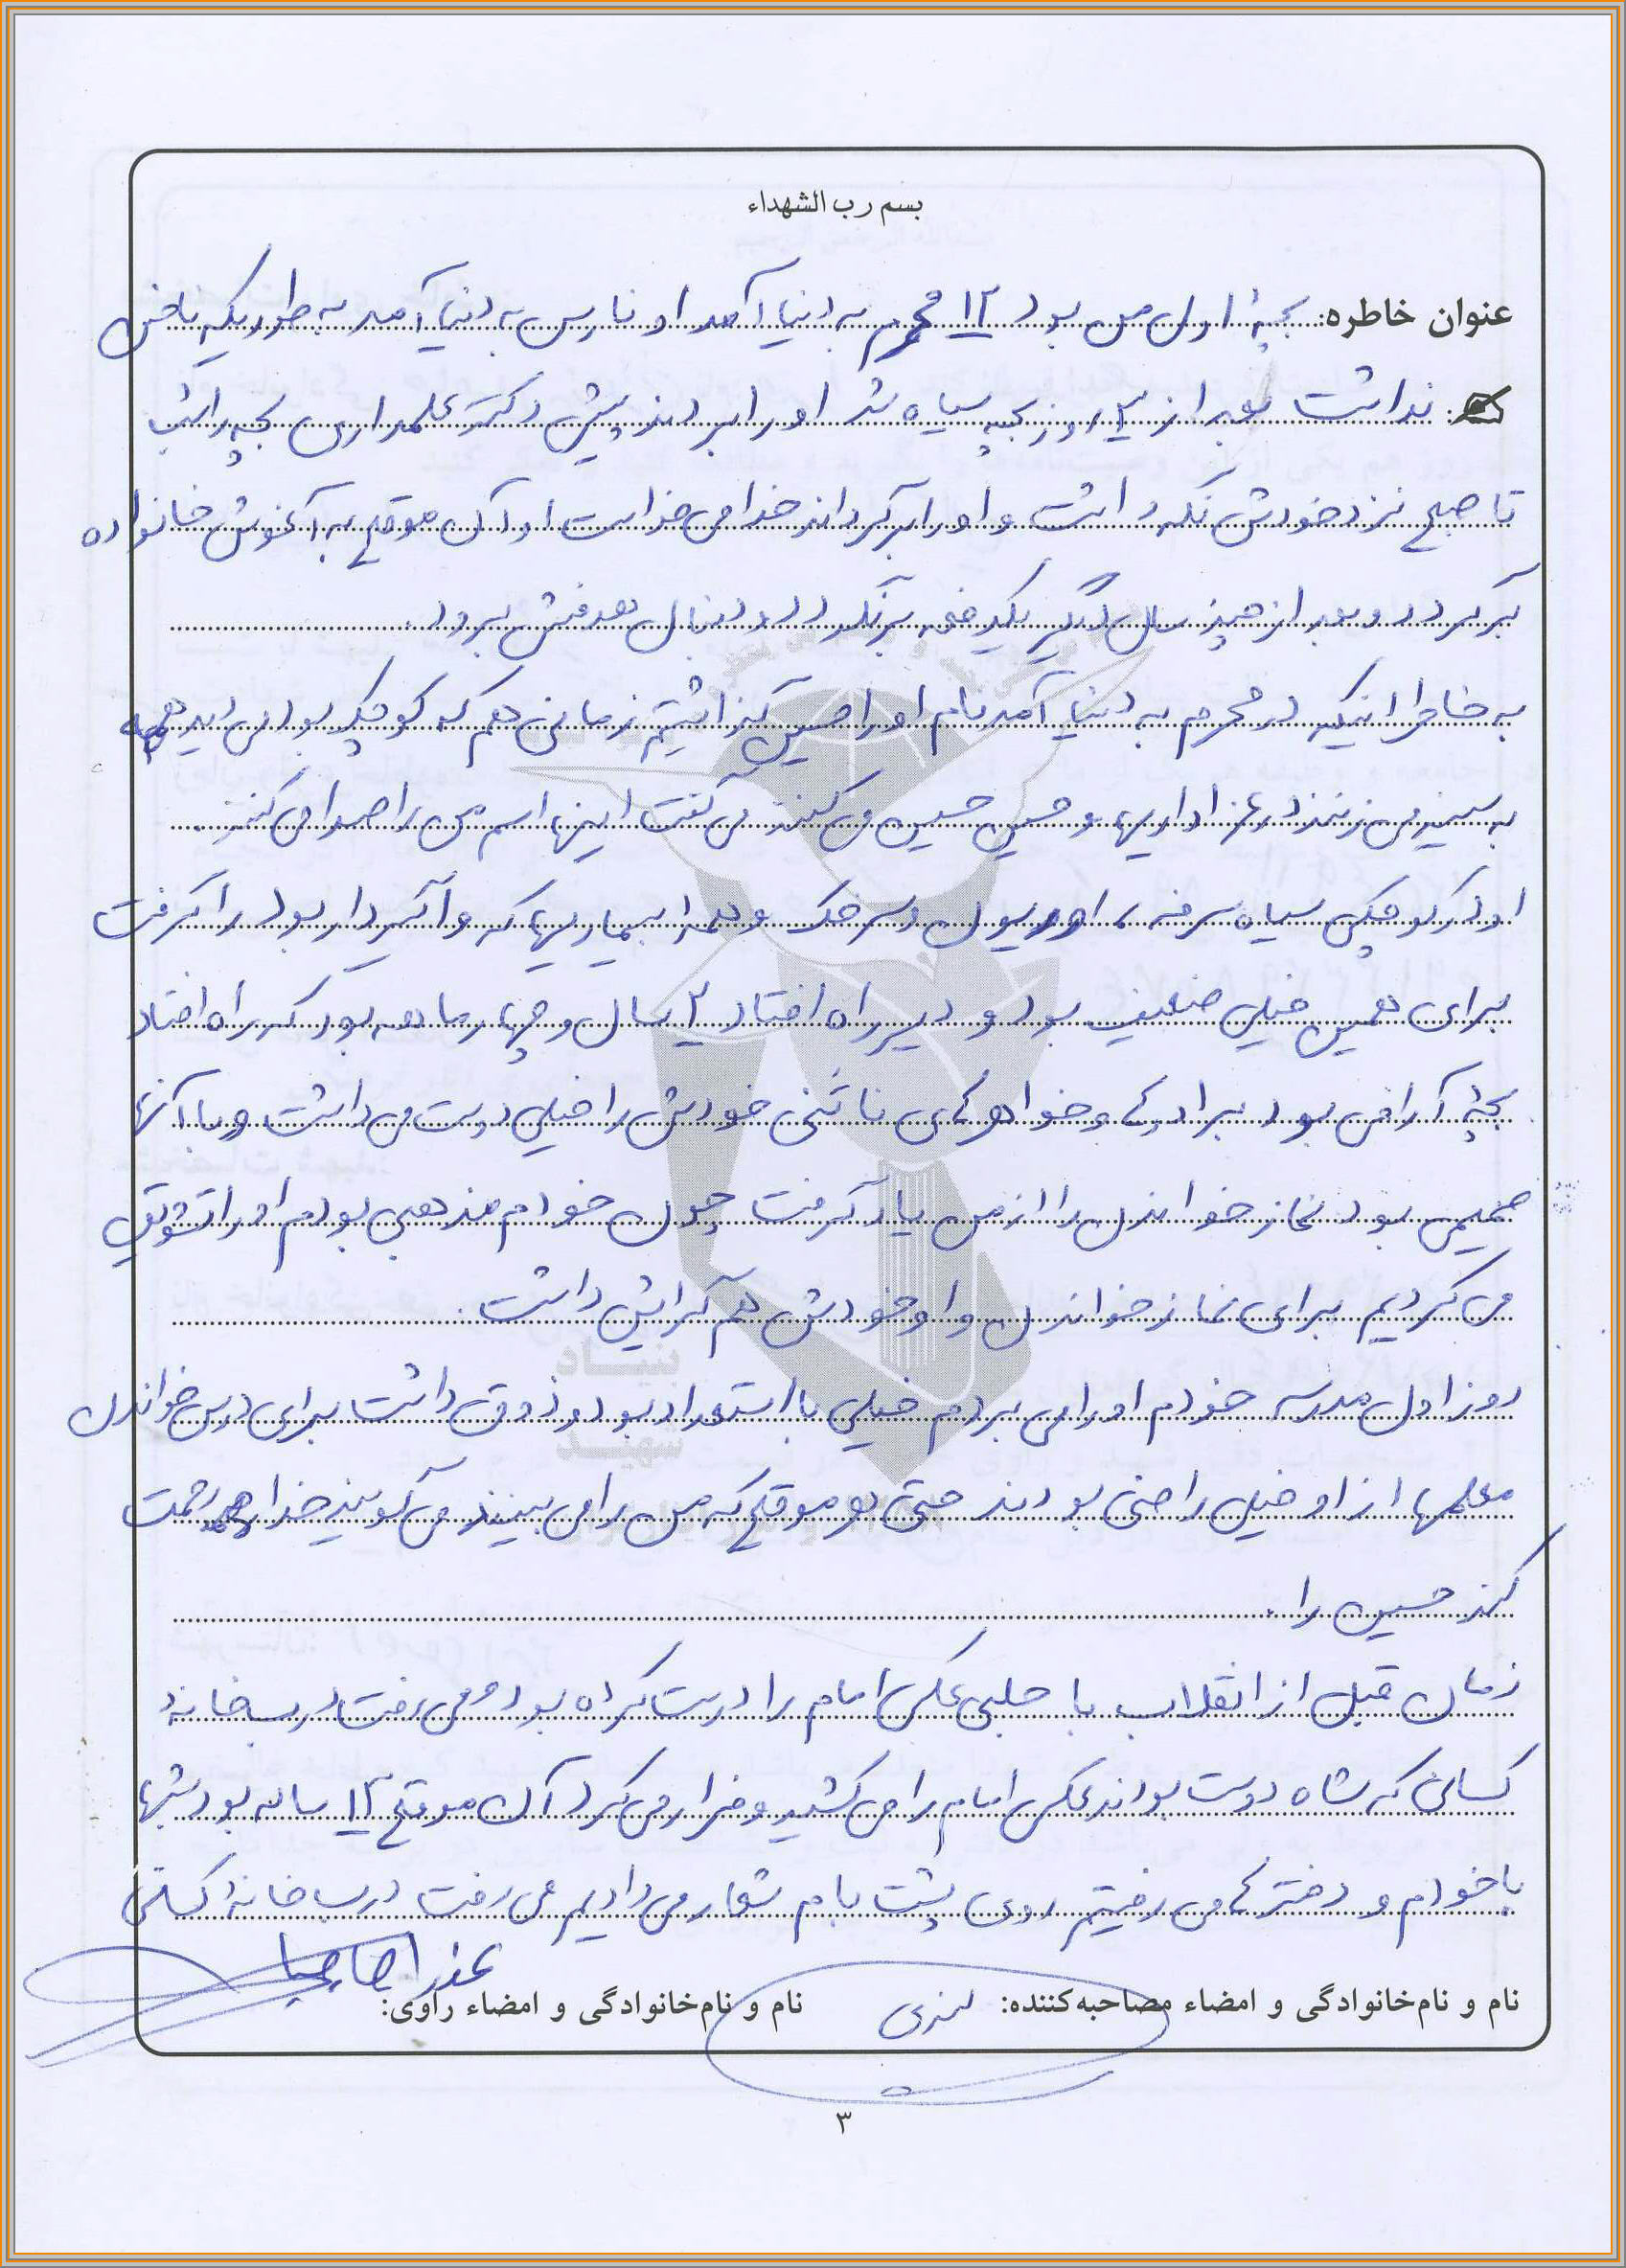 بسم رب الشهداء
عنوان خاطره: بچهٔ اول من بود ۱۲ محرم به دنیا آمد او نارس به دنیا آمد به طوریکه ناخن
نداشت بعد از ۲ روز بچه سیاه شد او را بردند پیش دکتر علمداری بچه را شب
تا صبح نزد خودش نگه داشت و او را برگرداند خدا می خواست او آن موقع به آغوش خانواده
برگردد و بعد از چند سال دیگر یکدفعه برنگردد و دنبال هدفش برود.
به خاطر اینکه در محرم به دنیا آمد نام او را حسین گذاشتیم زمانی هم که کوچک بود می دید همه
به سینه می زنند در عزاداریها و حسین حسین می کنند می گفت اینها اسم من را صدا می کنند.
او در کوچکی سیاه سرفه، اوریون و سرخک و همهٔ بیماریها که واگیردار بود را گرفت
برای همین خیلی ضعیف بود و دیر راه افتاد ۲ سال و چهار ماهه بود که راه افتاد
بچهٔ آرامی بود برادر و خواهرهای ناتنی خودش را خیلی دوست می داشت و با آنها
صمیمی بود نماز خواندن را از من یاد گرفت چون خودم مذهبی بودم او را تشویق
می کردیم برای نماز خواندن و او خودش هم گرایش داشت.
روز اول مدرسه خودم او را می بردم خیلی با استعداد بود و ذوق داشت برای درس خواندن
معلمها از او خیلی راضی بودند حتی هر موقع که من را می بینند می گویند خدا رحمت
کند حسین را.
زمان قبل از انقلاب با حلبی عکس امام را درست کرده بود و می رفت درب خانهٔ
کسانی که شاه دوست بودند عکس امام را می کشید و فرار می کرد آن موقع ۱۲ ساله بود شبها
با خودم و دخترهای می رفتیم روی پشت بام شعار می دادیم می رفت درب خانهٔ کسانی
عذرا
نام و نام‌خانوادگی و امضاء مصاحبه‌کننده:
نام و نام‌خانوادگی و امضاء راوی:
بنیاد
شهید
۳